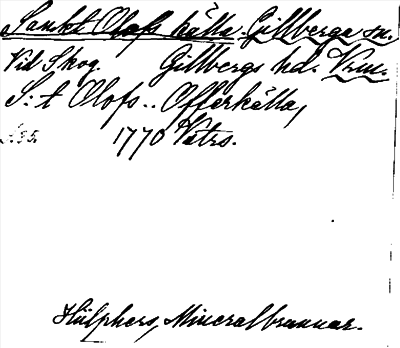 Sankt Olofs källa. Gillberga sn.
Vid Skog. Gillbergs hd. Vrm.
S:t Olofs.. Offerkälla,
1770 Vatrs.
Hülphers, Mineralbrunnar.